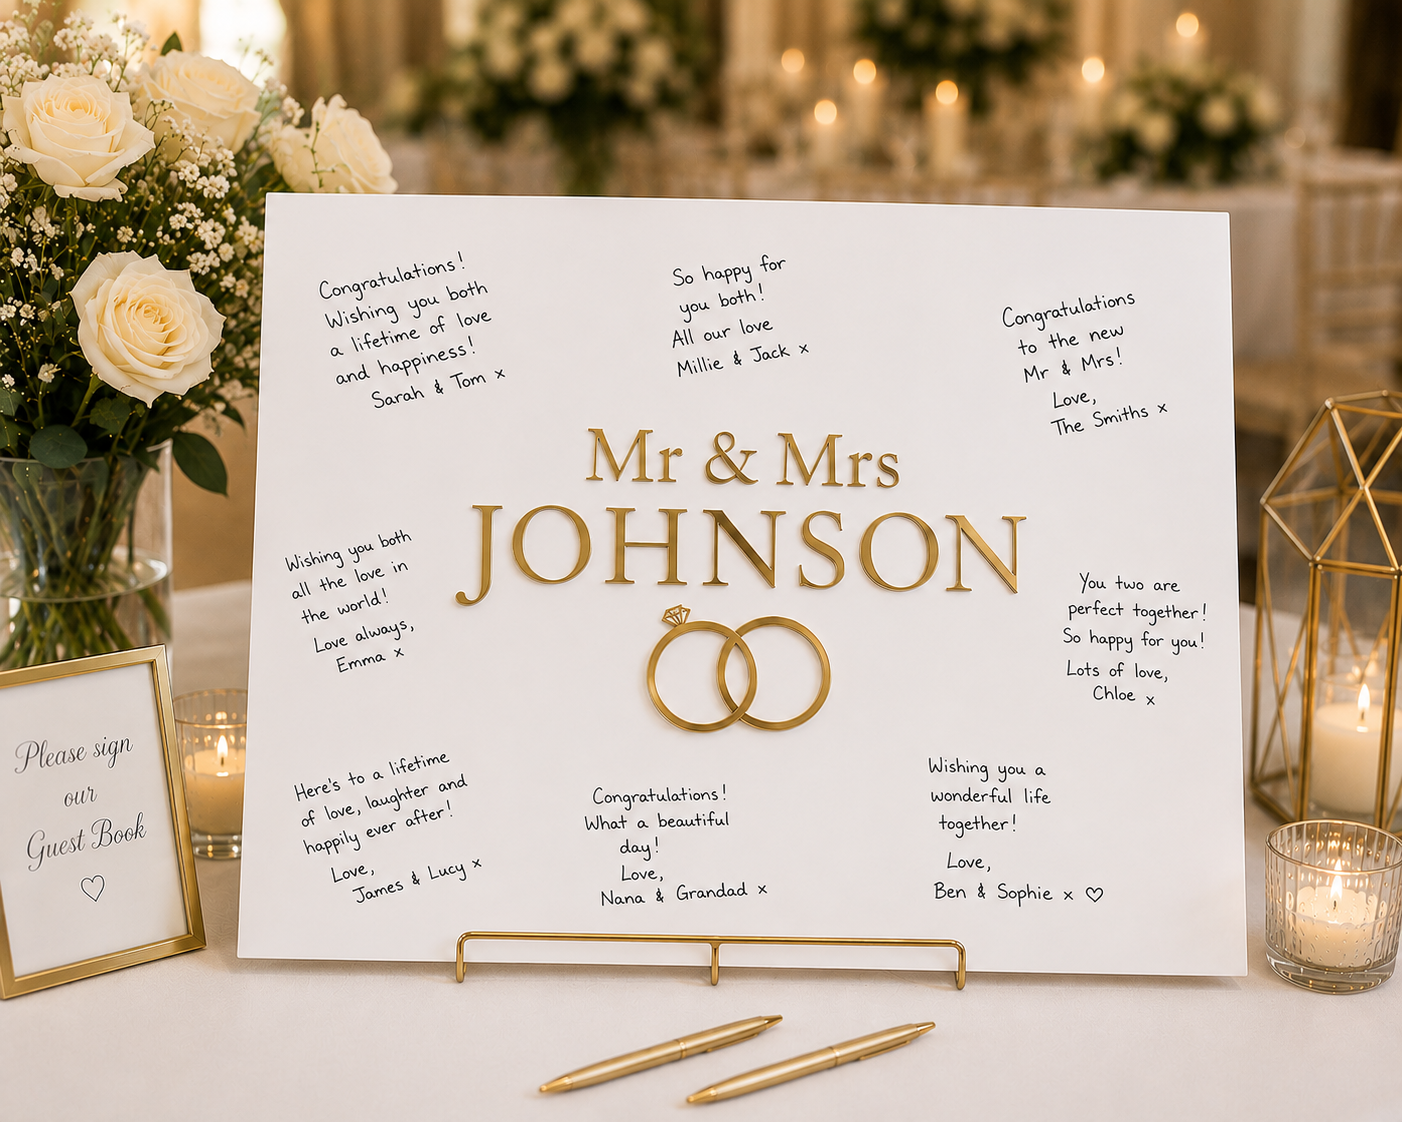 Congratulations!
Wishing you both
a lifetime of love
and happiness!
Sarah & Tom x
So happy for
you both!
All our love
Millie & Jack x
Congratulations
to the new
Mr & Mrs!
Love,
The Smiths x
Mr & Mrs
JOHNSON
Wishing you both
all the love in
the world!
Love always,
Emma x
You two are
perfect together!
So happy for you!
Lots of love,
Chloe x
Here's to a lifetime
of love, laughter and
happily ever after!
Love,
James & Lucy x
Congratulations!
What a beautiful
day!
Love,
Nana & Grandad x
Wishing you a
wonderful life
together!
Love,
Ben & Sophie x ♡
Please sign
our
Guest Book
♡